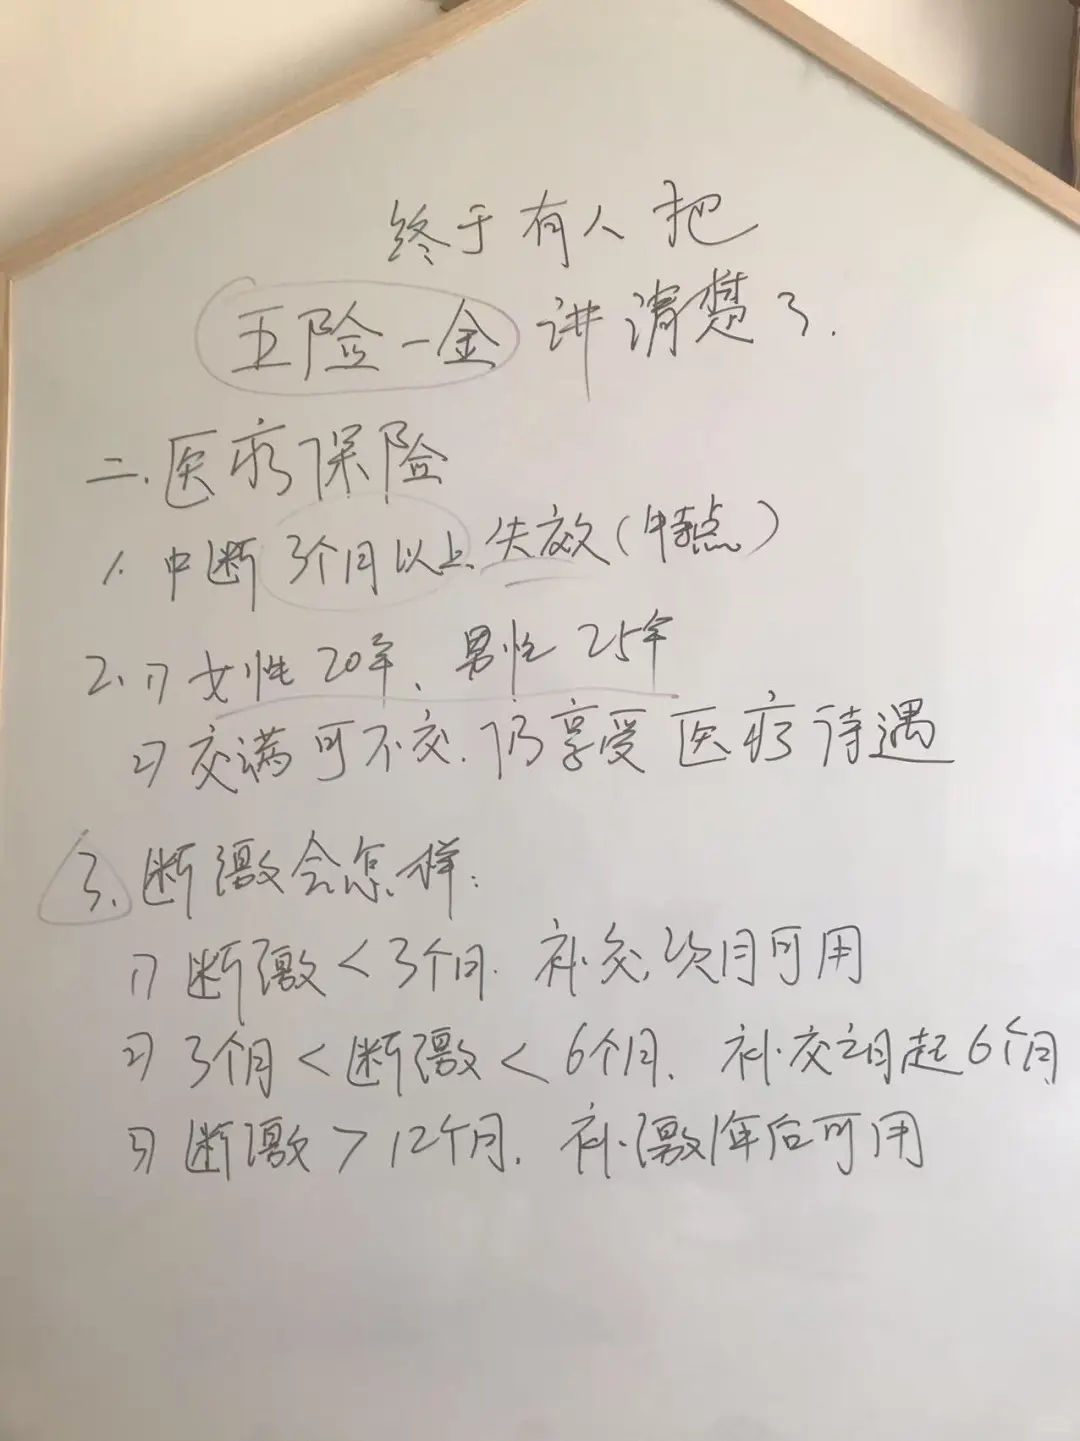 终于有人把
五险一金讲清楚了.
二.医疗保险
1.中断3个月以上失效(特点)
2.1)女性20年、男性25年
2)交满可不交.仍享受医疗待遇
3.断激会怎样:
1)断激<3个月.补交,次月可用
2)3个月<断激<6个月.补交之日起6个月
3)断激>12个月.补激1年后可用